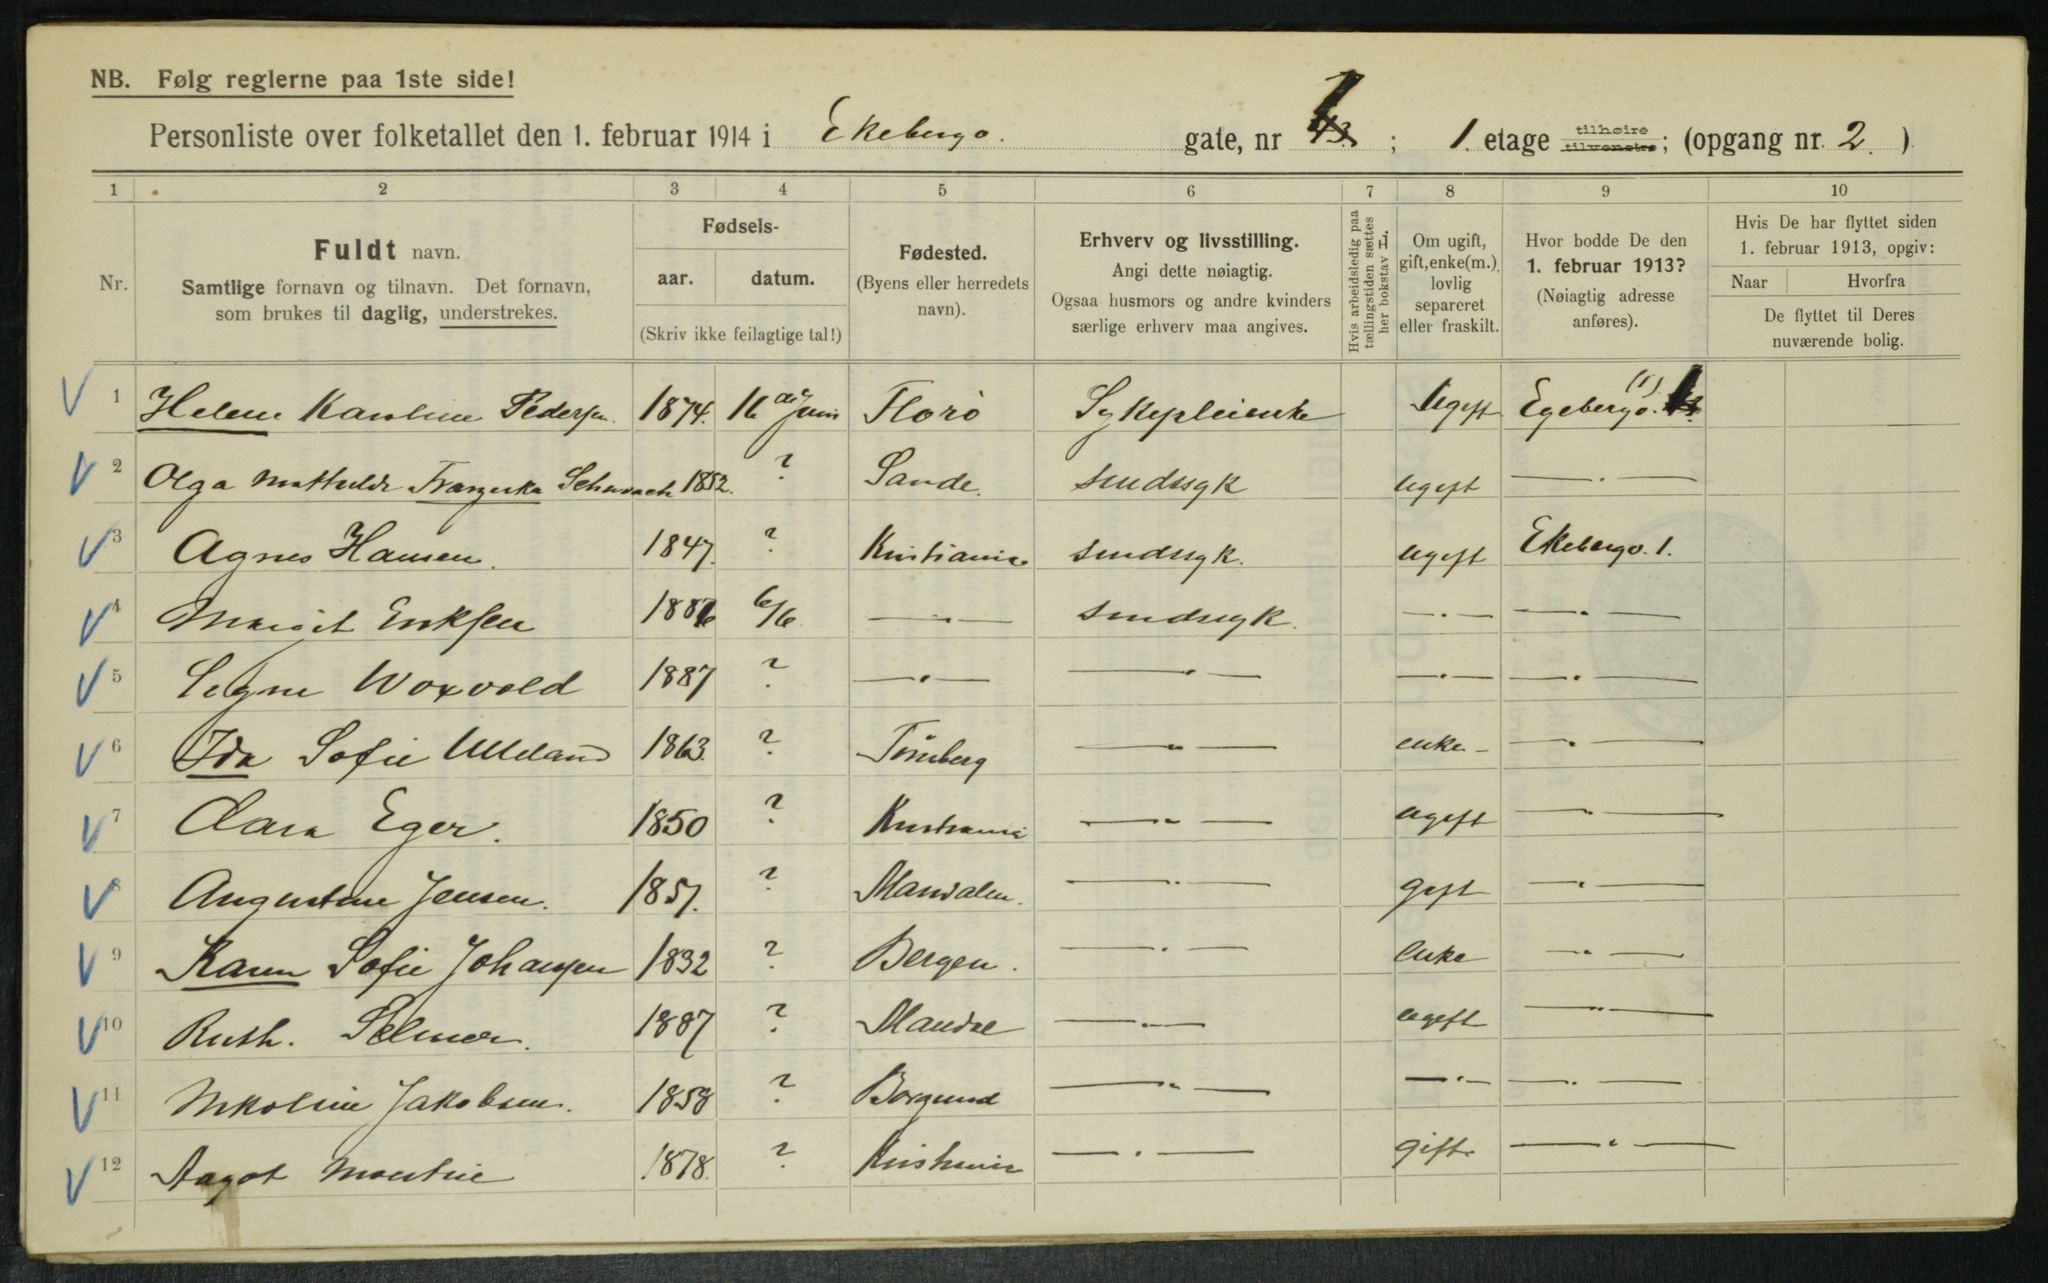 NB. Følg reglerne paa 1ste side!
Personliste over folketallet den 1. februar 1914 i Ekebergv. gate, nr 1 ; 1. etage tilhøire tilvenstre; (opgang nr. 2.)
1 2 3 4 5 6 7 8 9 10
Nr.
Fuldt navn.
Samtlige fornavn og tilnavn. Det fornavn,
som brukes til daglig, understrekes.
Fødsels-
aar. datum.
(Skriv ikke feilagtige tal!)
Fødested.
(Byens eller herredets
navn).
Erhverv og livsstilling.
Angi dette nøiagtig.
Ogsaa husmors og andre kvinders
særlige erhverv maa angives.
Hvis arbeidsledig paa
tællingstiden sættes
her bokstav L.
Om ugift,
gift, enke(m.),
lovlig
separeret
eller fraskilt.
Hvor bodde De den
1. februar 1913?
(Nøiagtig adresse
anføres).
Hvis De har flyttet siden
1. februar 1913, opgiv:
Naar Hvorfra
De flyttet til Deres
nuværende bolig.
1 Helene Karoline Pedersen. 1874. 16 de Juni Florö Sykepleierske Ugift Egebergv. (1)
2 Olga Mathilde Franziska Schwach 1852. ? Sande. sindssyk ugift —〃—
3 Agnes Hansen. 1847. ? Kristiania sindssyk. ugift Ekebergv. 1.
4 Margit Eriksen 1886 6/6. —〃— sindssyk. —〃— —〃—
5 Signe Woxvold 1887 ? —〃— —〃— —〃— —〃—
6 Ida Sofie Ulleland 1863. ? Tönsberg —〃— enke- —〃—
7 Clara Eger. 1850 ? Kristiania —〃— ugift —〃—
8 Augustine Jensen. 1851. ? Mandalen. —〃— gift —〃—
9 Karen Sofie Johansen 1832 ? Bergen. —〃— enke —〃—
10 Ruth. Selmer. 1887 ? Mandal —〃— ugift —〃—
11 Nikoline Jakobsen. 1858 ? Borgund —〃— —〃— —〃—
12 Aagot 1878. ? Kristiania —〃— gift. —〃—